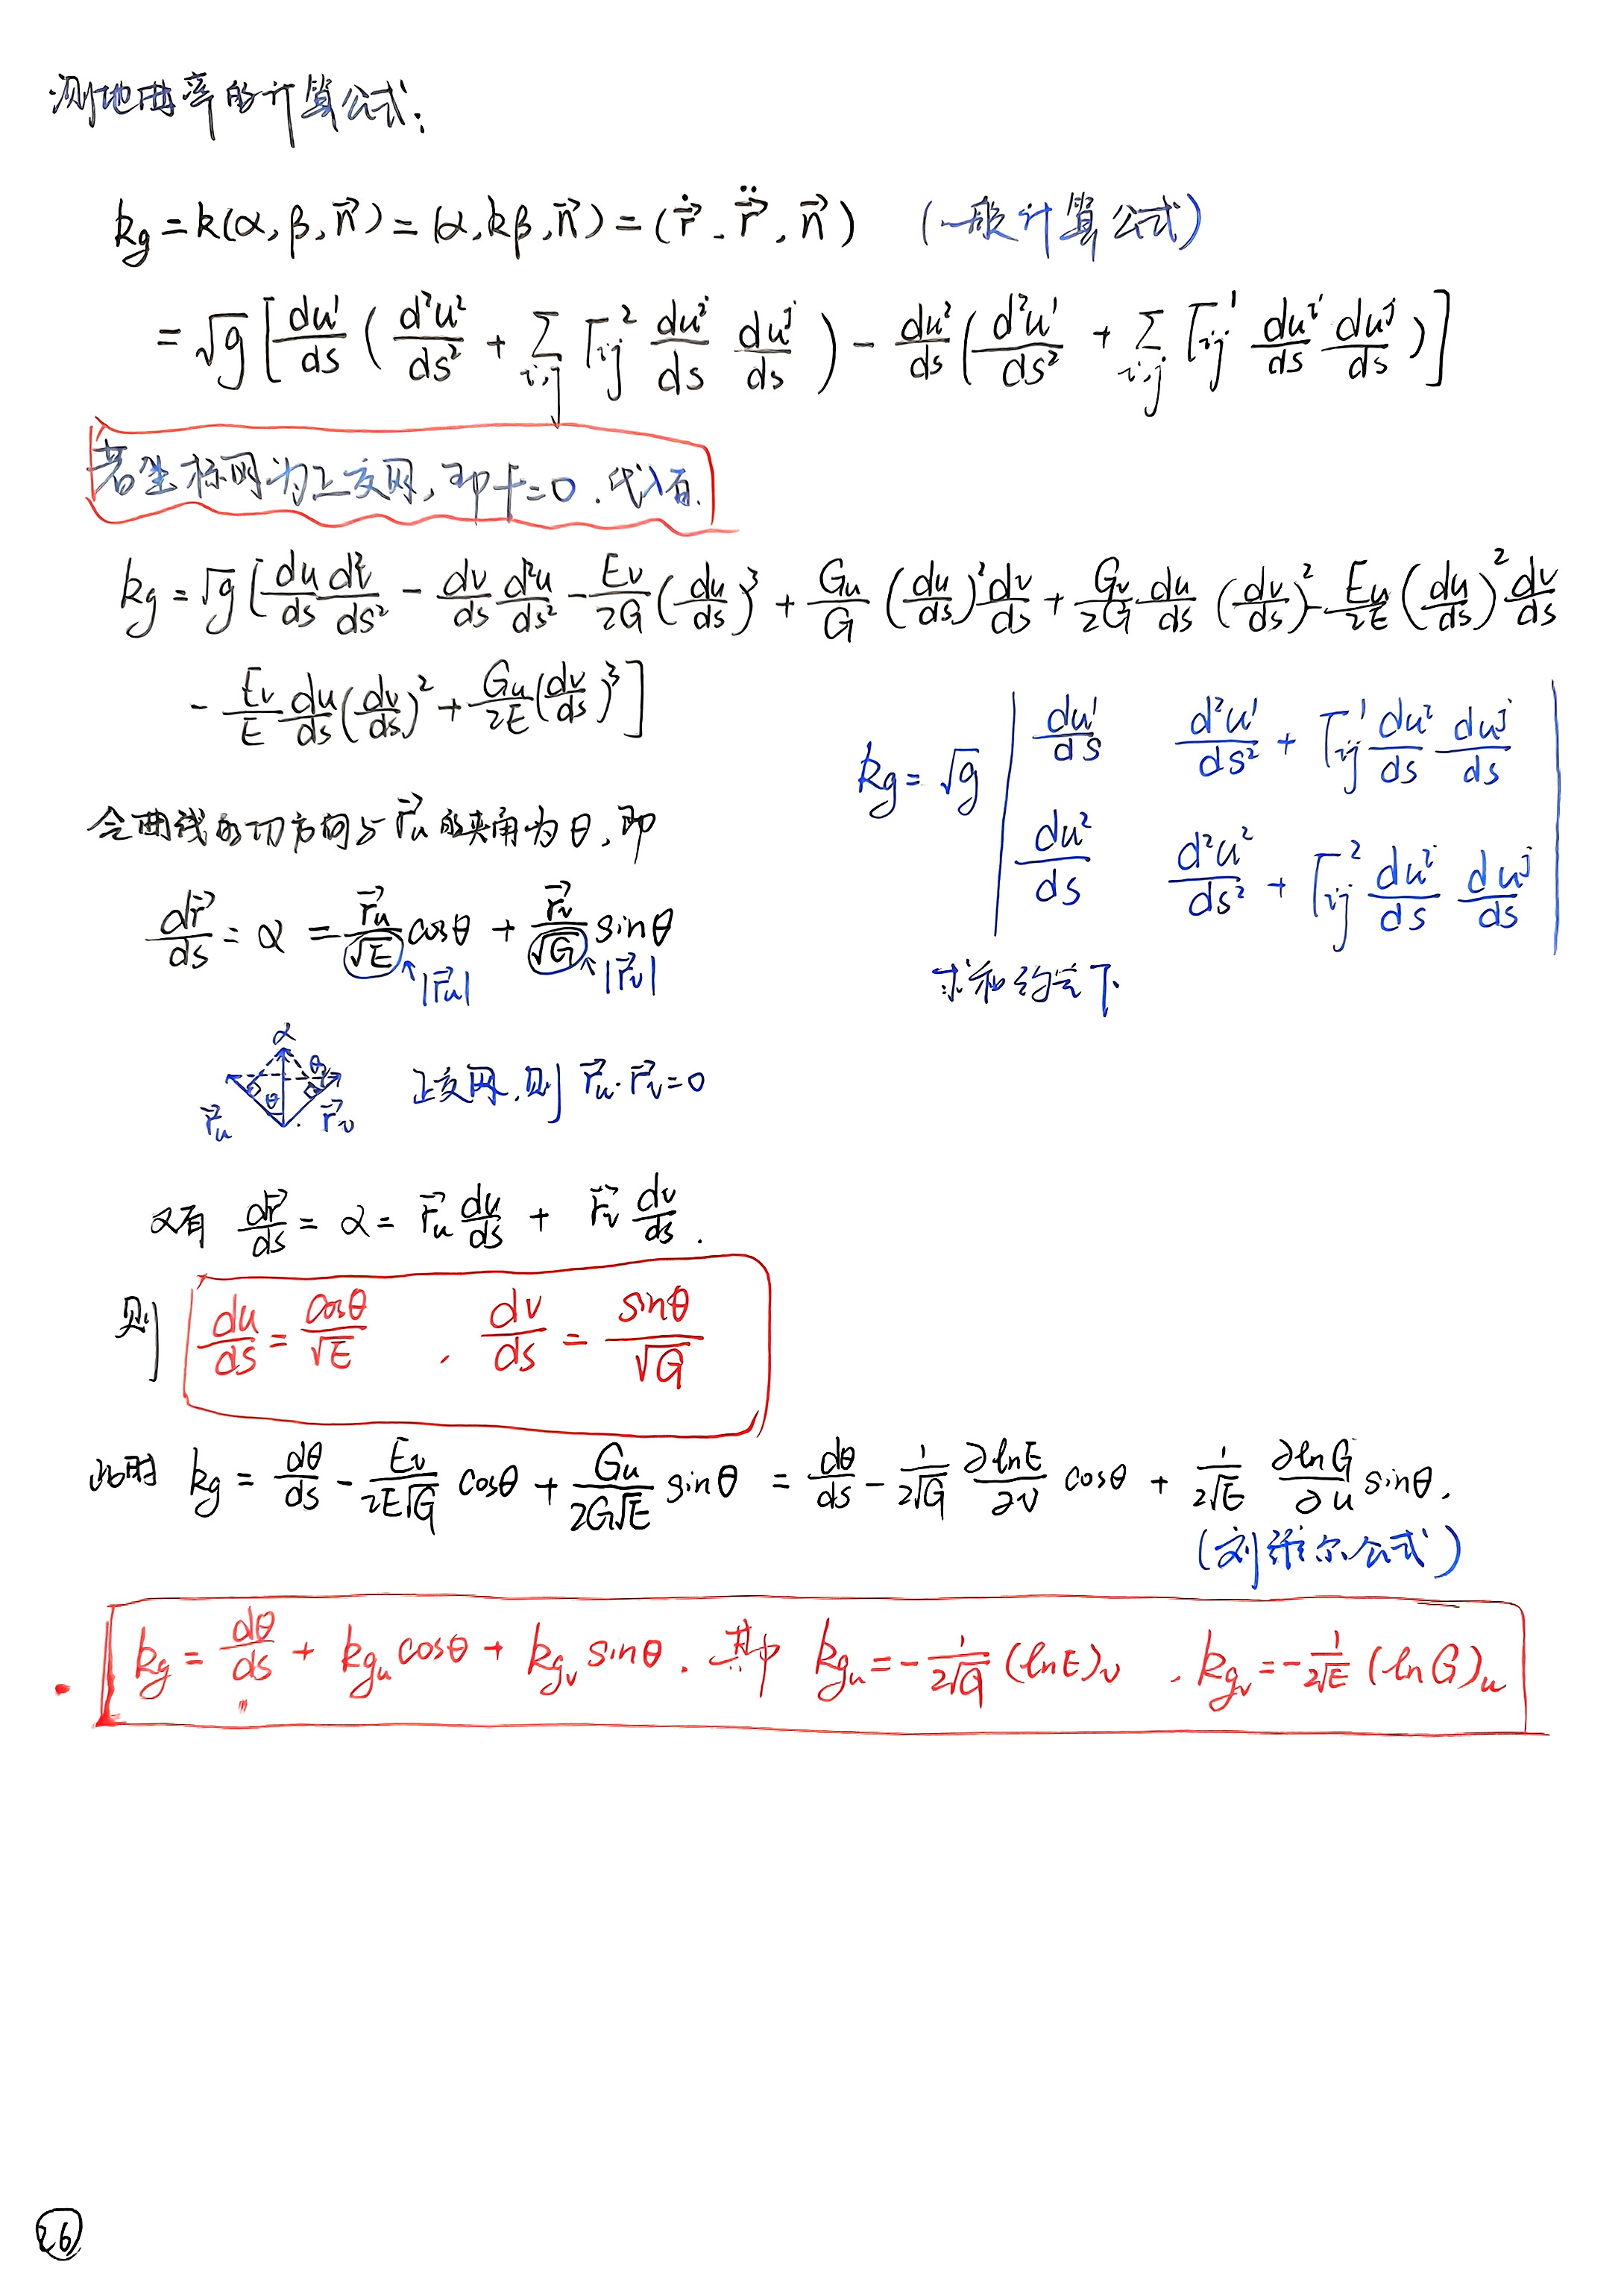 测地曲率的计算公式:
kg = k(α, β, n⃗) = (α, kβ, n⃗) = (ṙ⃗, r̈⃗, n⃗) (一般计算公式)
= √g [ du¹/ds ( d²u²/ds² + Σ_{i,j} Γ_{ij}² duⁱ/ds duʲ/ds ) - du²/ds ( d²u¹/ds² + Σ_{i,j} Γ_{ij}¹ duⁱ/ds duʲ/ds ) ]
若坐标网为正交网, 即 F=0. 代入有.
kg = √g [ du/ds d²v/ds² - dv/ds d²u/ds² - Ev/2G (du/ds)³ + Gu/G (du/ds)² dv/ds + Gv/2G du/ds (dv/ds)² - Eu/2E (du/ds)² dv/ds
- Ev/E du/ds (dv/ds)² + Gu/2E (dv/ds)³ ]
kg = √g | du¹/ds d²u¹/ds² + Γ_{ij}¹ duⁱ/ds duʲ/ds |
| du²/ds d²u²/ds² + Γ_{ij}² duⁱ/ds duʲ/ds |
求和约定下
令曲线的切方向与 r⃗u 的夹角为 θ, 即
dr⃗/ds = α = r⃗u/√E cosθ + r⃗v/√G sinθ
|r⃗u| |r⃗v|
α
θ θ
r⃗u r⃗v
正交网, 则 r⃗u · r⃗v = 0
又有 dr⃗/ds = α = r⃗u du/ds + r⃗v dv/ds .
则 du/ds = cosθ/√E , dv/ds = sinθ/√G
此时 kg = dθ/ds - Ev/2E√G cosθ + Gu/2G√E sinθ = dθ/ds - 1/2√G ∂lnE/∂v cosθ + 1/2√E ∂lnG/∂u sinθ.
(刘维尔公式)
kg = dθ/ds + kgu cosθ + kgv sinθ . 其中 kgu = - 1/2√G (lnE)v , kgv = - 1/2√E (lnG)u
26